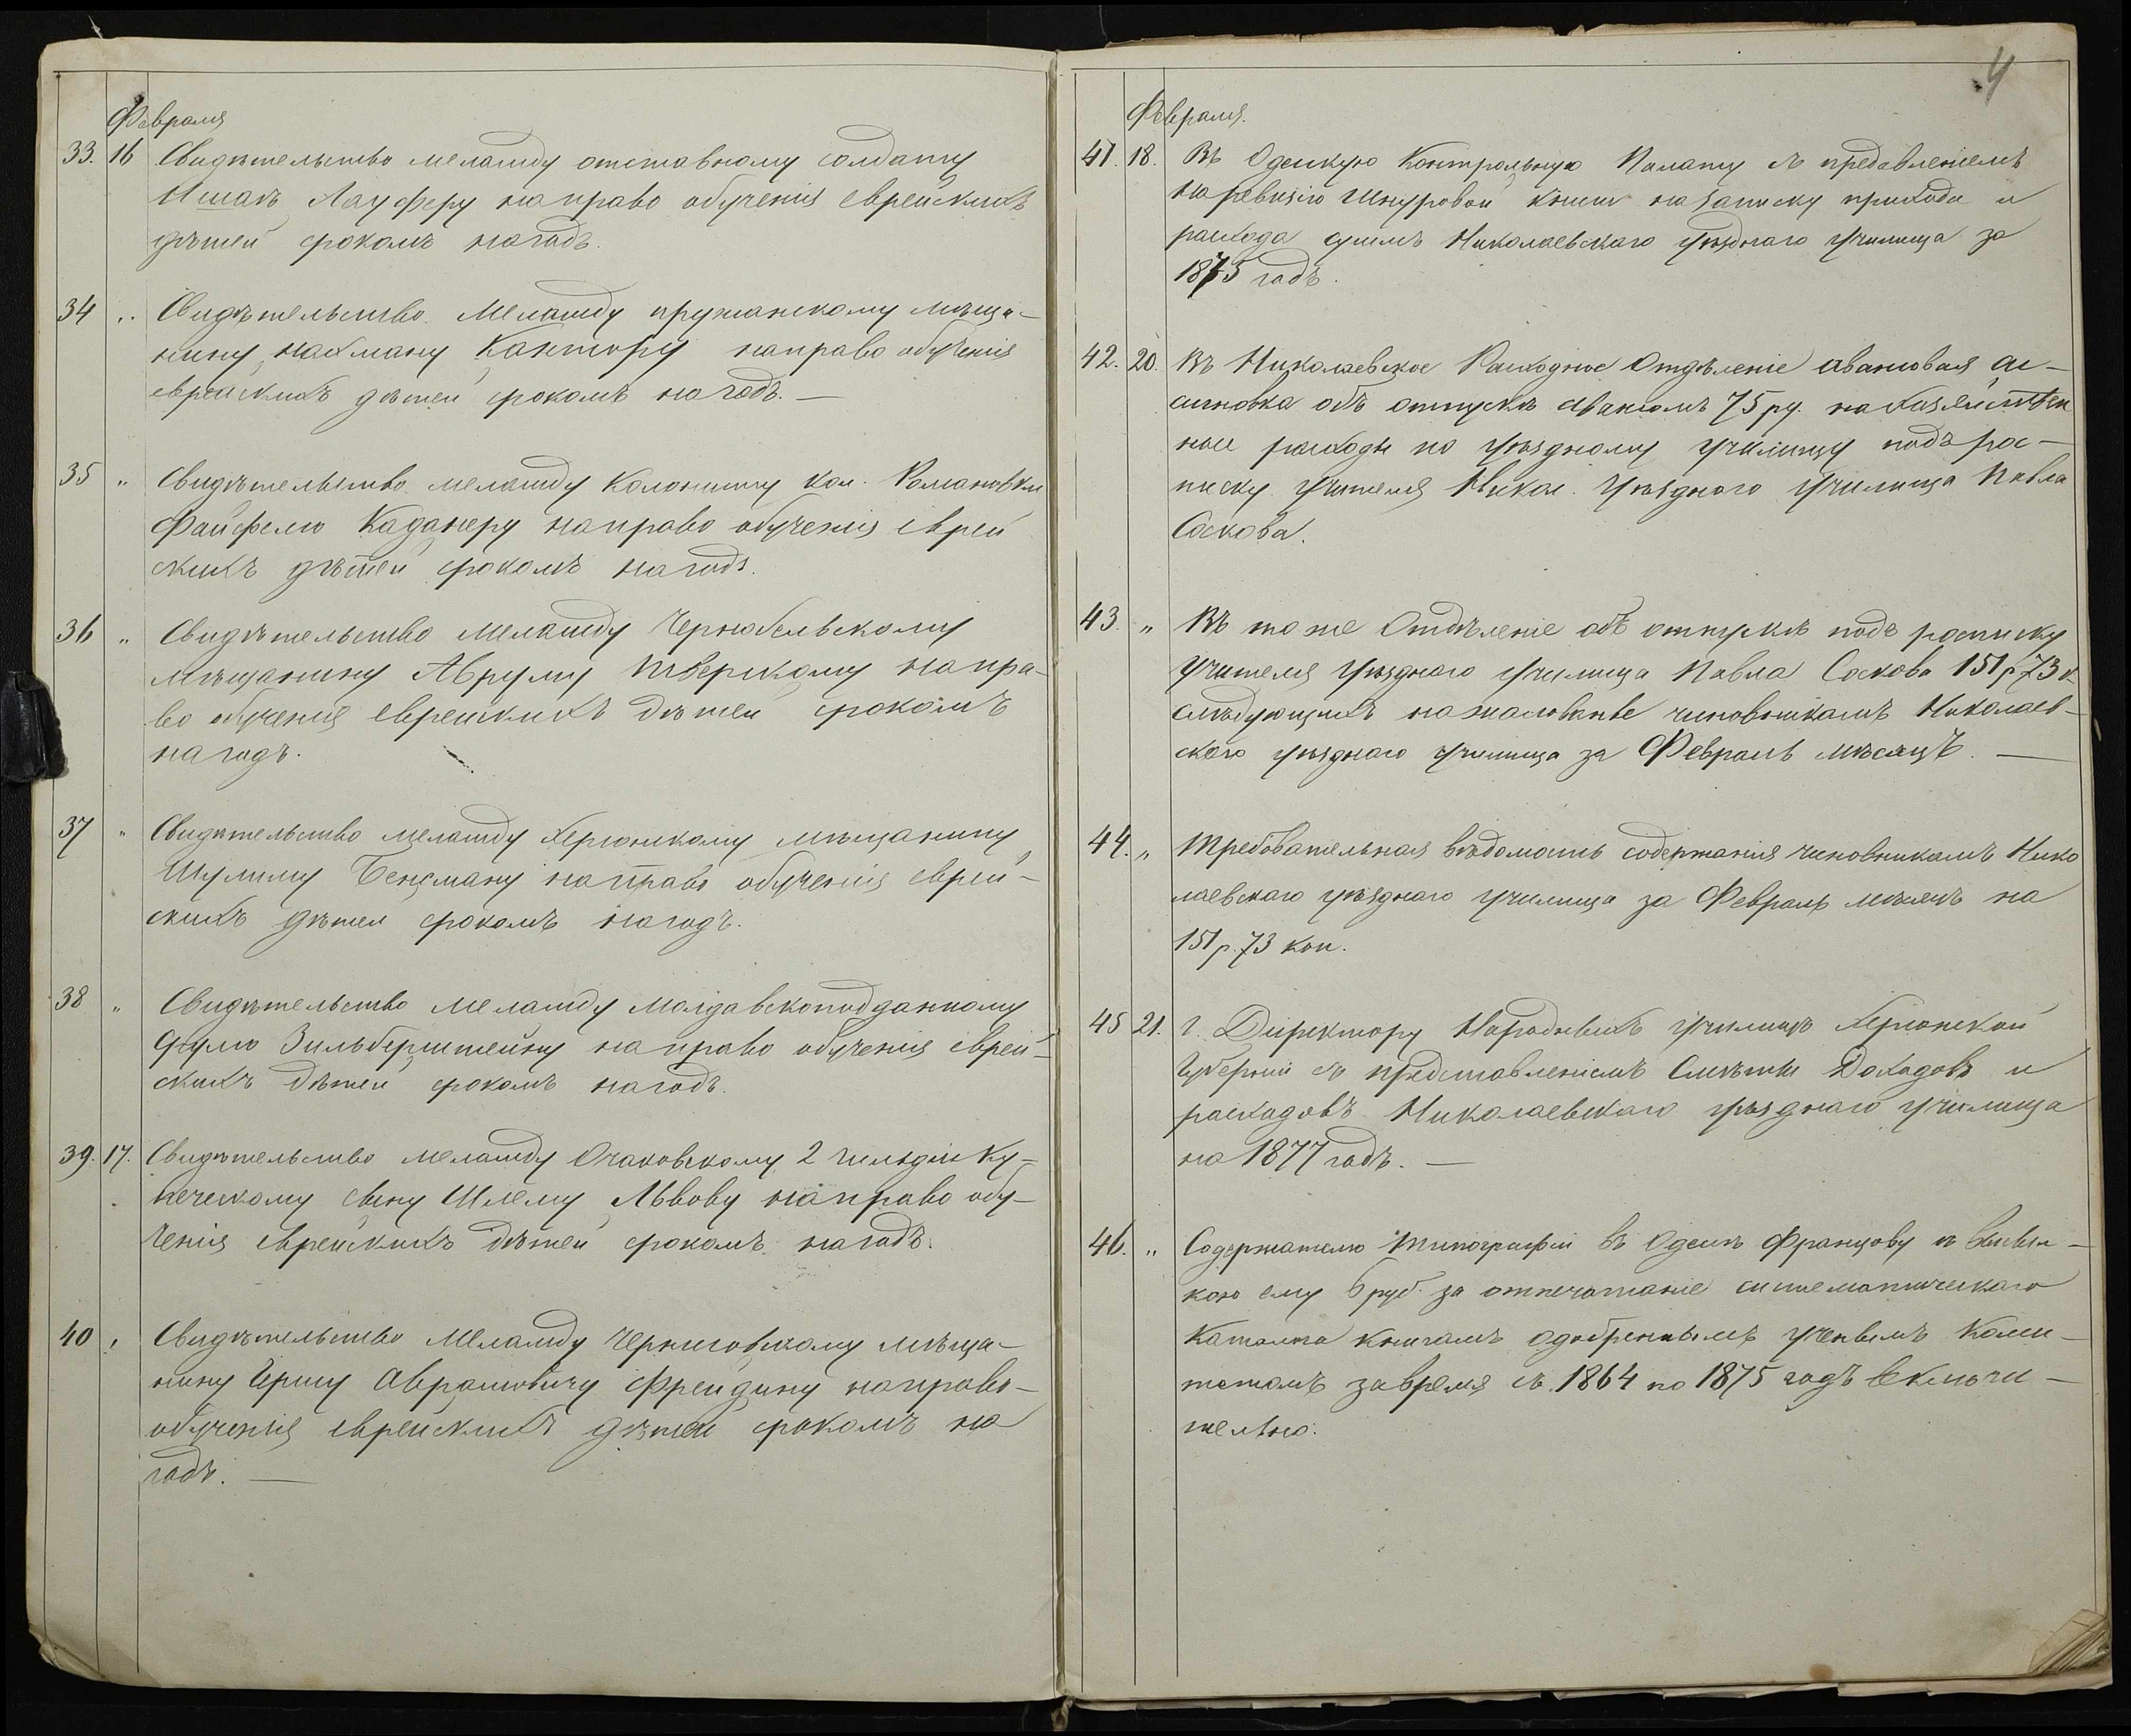 Февраля
33. 16 Свидѣтельство меламду отставному солдату
Ицикъ Лауферу на право обученія еврейскихъ
дѣтей срокомъ на годъ.
34 „ Свидѣтельство меламду пружанскому мѣща-
нину Нахману Кантору на право обученія
еврейскихъ дѣтей срокомъ на годъ. —
35 „ Свидѣтельство меламду колонисту кол. Романовки
Файфелю Каданеру на право обученія еврей
скихъ дѣтей срокомъ на годъ.
36 „ Свидѣтельство меламду Чернобельскому
мѣщанину Аврулу Тверскому на пра-
во обученія еврейскихъ дѣтей срокомъ
на годъ.
37 „ Свидѣтельство меламду Херсонскому мѣщанину
Шулиму Бенсману на право обученія еврей-
скихъ дѣтей срокомъ на годъ.
38 „ Свидѣтельство меламду молдавскоподданному
Зильберштейну на право обученія еврей-
скихъ дѣтей срокомъ на годъ.
39. 17. Свидѣтельство меламду Очаковскому 2 гильдіи ку-
печескому сыну Шлему Львову на право обу-
ченія еврейскихъ дѣтей срокомъ на годъ.
40 „ Свидѣтельство меламду Черниговскому мѣща-
нину Гершу Аврамовичу Фрейдину на право-
обученія еврейскихъ дѣтей срокомъ на
годъ. —
4
Февраля.
41. 18. Въ Одесскую Контрольную Палату съ представленіемъ
на ревизію Шнуровой книги на записку прихода и
расхода суммъ Николаевскаго уѣзднаго училища за
1875 годъ.
42. 20. Въ Николаевское Расходное Отдѣленіе авансовая ас-
сигновка объ отпускѣ авансомъ 75 ру. на хозяйствен
ные расходы по уѣздному училищу подъ рос-
писку учителя Никол. уѣзднаго училища Павла
Соскова.
43. „ Въ то же Отдѣленіе объ отпускѣ подъ росписку
учителя уѣзднаго училища Павла Соскова 151 р. 73 к.
слѣдующихъ на жалованье чиновникамъ Николаев-
скаго уѣзднаго училища за Февраль мѣсяцъ. —
44. „ Требовательная вѣдомость содержанія чиновникамъ Нико
лаевскаго уѣзднаго училища за Февраль мѣсяцъ на
151 р. 73 коп.
45 21. Г. Директору Народныхъ училищъ Херсонской
Губерніи съ представленіемъ Смѣты Доходовъ и
расходовъ Николаевскаго уѣзднаго училища
на 1877 годъ. —
46. „ Содержателю типографіи въ Одессѣ Францову съ высыл-
кою ему 6 руб. за отпечатаніе систематическаго
каталога книгамъ одобреннымъ ученымъ коми-
тетомъ за время съ 1864 по 1875 годъ включи-
тельно.